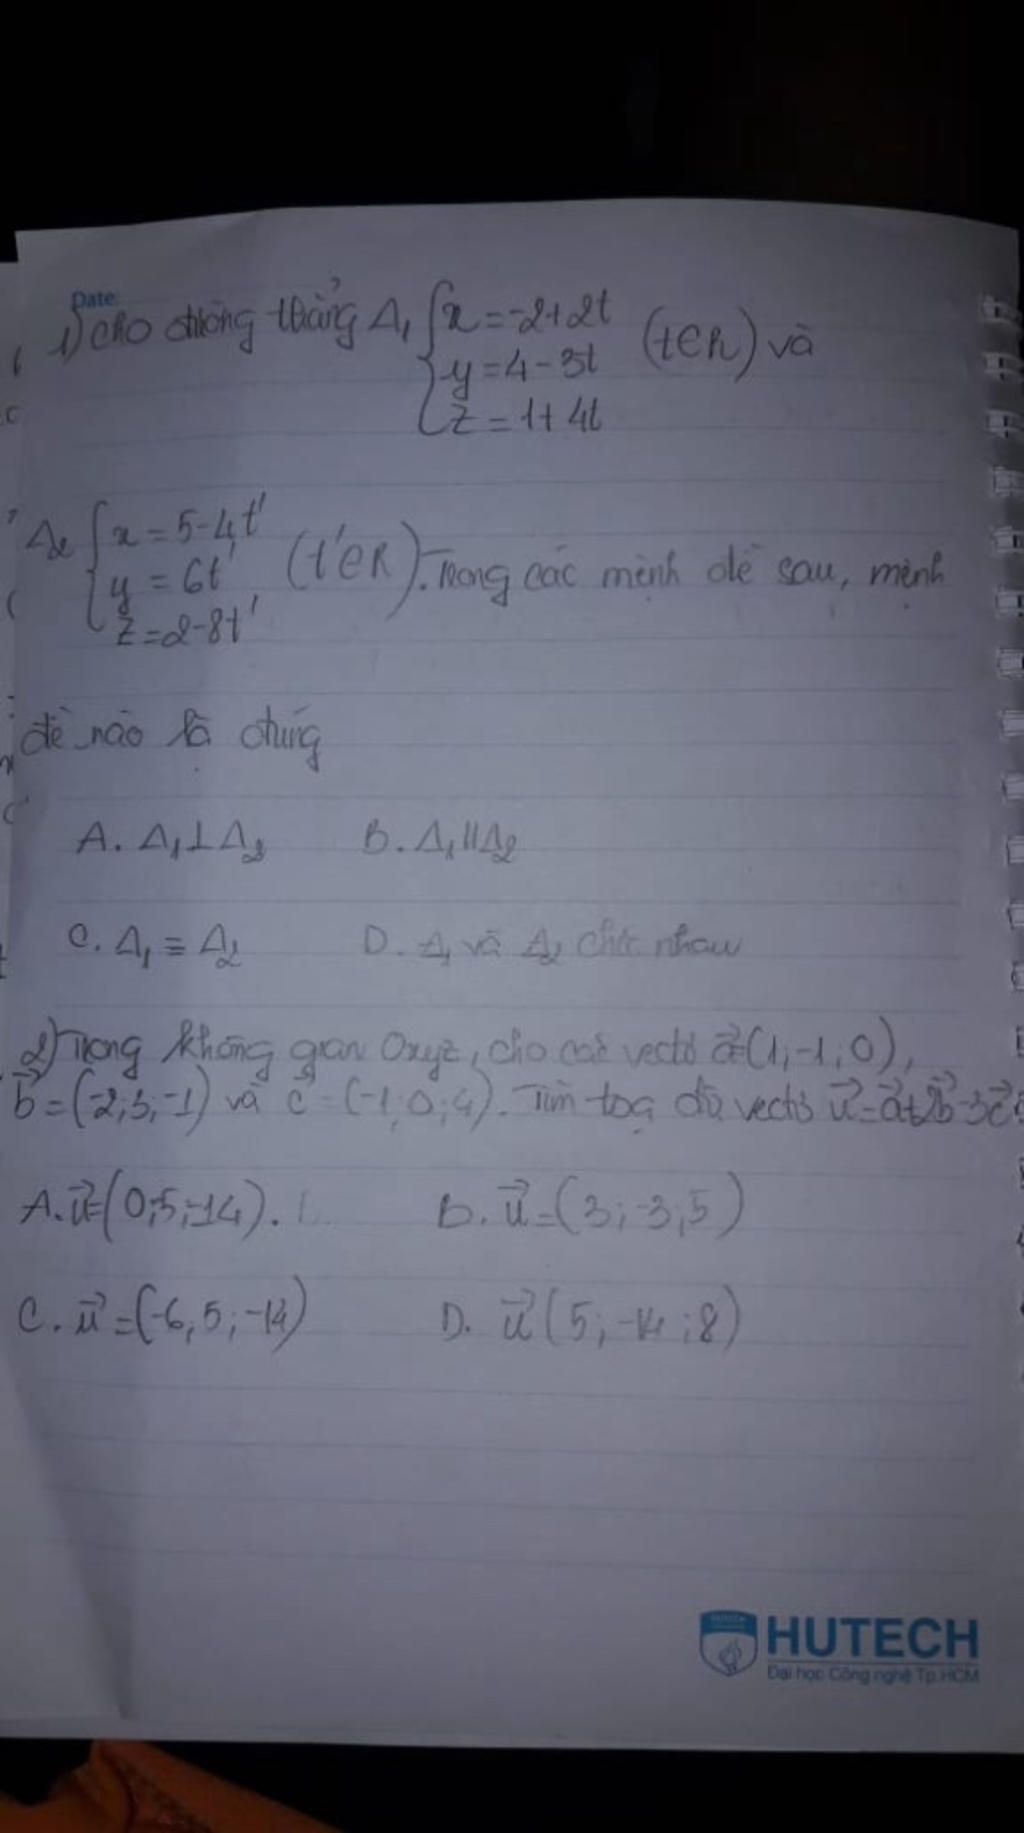 Date:
1) Cho đường thẳng Δ₁ { x = -2+2t
y = 4-3t (t∈R) và
z = 1+4t
Δ₂ { x = 5-4t'
y = 6t' (t'∈R). Trong các mệnh đề sau, mệnh
z = 2-8t'
đề nào là đúng
A. Δ₁ ⊥ Δ₂ B. Δ₁ // Δ₂
C. Δ₁ ≡ Δ₂ D. Δ₁ và Δ₂ chéo nhau
2) Trong không gian Oxyz, cho các vectơ a⃗=(1;-1;0),
b⃗=(-2;3;-1) và c⃗=(-1;0;4). Tìm tọa độ vectơ u⃗=a⃗+2b⃗-3c⃗
A. u⃗=(0;5;-14). B. u⃗=(3;-3;5)
C. u⃗=(-6;5;-14) D. u⃗(5;-14;8)
HUTECH
HUTECH
Đại học Công nghệ Tp.HCM